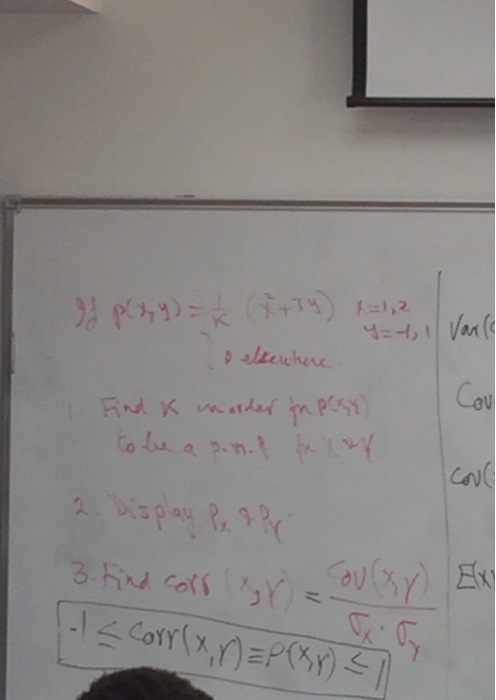 If p(x,y) = 1/K (x²+3y) x=1,2
y=-1,1
0 elsewhere.
1. Find K in order for p(x,y)
to be a p.m.f for X & Y
2. Display Px & PY
3. Find corr (X,Y) = Cov(X,Y) / σx · σY
-1 ≤ Corr(X,Y) ≡ P(X,Y) ≤ 1
Var(
Cov
Cov(
E(XY